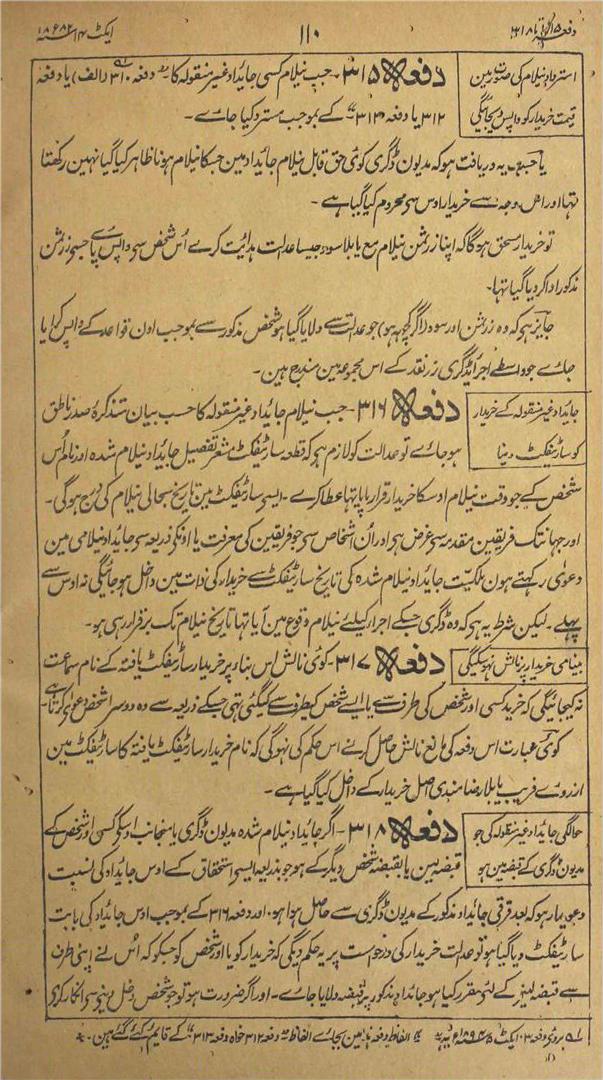 دفعہ ۳۱۵ تا ۳۱۸
۱۱۰
ایکٹ ۱۴ ۱۸۸۲ء
استرداد نیلام کی صورت مین
قیمت خریدار کو واپس دیجائیگی
دفعہ ۳۱۵ - جب نیلام کسی جائداد غیر منقولہ کا دفعہ ۳۱۰ (الف) یا دفعہ
۳۱۲ یا دفعہ ۳۱۳ کے بموجب مسترد کیا جاے -
یا جب یہ دریافت ہو کہ مدیون ڈگری کوئی حق قابل نیلام جائداد مین جسکا نیلام ہونا ظاہر کیا گیا نہین رکھتا
تھا اور اس وجہ سے خریدار اوس سے محروم کیا گیا ہے -
تو خریدار مستحق ہوگا کہ اپنا زر ثمن نیلام مع یا بلا سود جیسا عدالت ہدایت کرے اُس شخص سے واپس پاے جسے زر ثمن
مذکور ادا کردیا گیا تھا -
جایز ہے کہ وہ زر ثمن اور سود (اگر کچھ ہو) جو عدالت سے دلایا گیا ہو شخص مذکور سے بموجب اون قواعد کے واپس کرایا
جاے جو واسطے اجراے ڈگری زر نقد کے اس مجموعہ مین مندرج ہین -
جائداد غیر منقولہ کے خریدار
کو سارٹیفکٹ دینا
دفعہ ۳۱۶ - جب نیلام جائداد غیر منقولہ کا حسب بیان تذکرۂ صدر ناطق
ہو جاے تو عدالت کو لازم ہے کہ قطعہ سارٹیفکٹ مشعر تفصیل جائداد نیلام شدہ اور نام اُس
شخص کے جو وقت نیلام اوسکا خریدار قرار پایا تھا عطا کرے - ایسی سارٹیفکٹ مین تاریخ بحالی نیلام کی درج ہوگی -
اور جہانتک فریقین مقدمہ سے غرض ہے اور اُن اشخاص سے جو فریقین کی معرفت یا اونکے ذریعہ سے جائداد نیلامی مین
دعوٰی رکھتے ہون ملکیت جائداد نیلام شدہ کی تاریخ سارٹیفکٹ سے خریدار کی ذات مین داخل ہو جائیگی نہ اوس سے
پہلے - لیکن شرط یہ ہے کہ وہ ڈگری جسکے اجراء کیلئے نیلام وقوع مین آیا تھا تاریخ نیلام تک برقرار رہی ہو -
بینامی خریدار پر نالش نہو سکیگی
دفعہ ۳۱۷ - کوئی نالش اس بناء پر خریدار سارٹیفکٹ یافتہ کے نام سماعت
نہ کیجائیگی کہ خرید کسی اور شخص کی طرف سے یا ایسے شخص کیطرف سے کیگئی تھی جسکے ذریعہ سے وہ دوسرا شخص دعوٰی کرتا ہے -
کوئی عبارت اس دفعہ کی مانع نالش حاصل کرنے اس حکم کی نہوگی کہ نام خریدار سارٹیفکٹ یافتہ کا سارٹیفکٹ مین
ازروے فریب یا بلا رضامندی اصل خریدار کے داخل کیا گیا ہے -
حوالگی جائداد غیر منقولہ کی جو
مدیون ڈگری کے قبضہ مین ہو
دفعہ ۳۱۸ - اگر جائداد نیلام شدہ مدیون ڈگری یا منجانب اوسکے کسی اور شخص کے
قبضہ مین یا بقبضہ شخص دیگر کے ہو جو بذریعہ ایسے استحقاق کے اوس جائداد کی نسبت
دعویدار ہو کہ بعد قرقی جائداد مذکور کے مدیون ڈگری سے حاصل ہوا ہو - اور دفعہ ۳۱۶ کے بموجب اوس جائداد کی بابت
سارٹیفکٹ دیا گیا ہو تو عدالت خریدار کی درخواست پر یہ حکم دیگی کہ خریدار کو یا اور شخص کو جسکو کہ اُس نے اپنی طرف
سے قبضہ لینے کے لئے مقرر کیا ہو جائداد مذکور پر قبضہ دلایا جاے - اور اگر ضرورت ہو تو جو شخص دخل دینے سے انکار کرے
بروے دفعہ ۳ ایکٹ ۵ ۱۸۹۴ء یہ الفاظ دفعہ ہذا مین بجاے الفاظ دفعہ ۳۱۲ خواہ دفعہ ۳۱۳ کے قایم کئے گئے ہین -